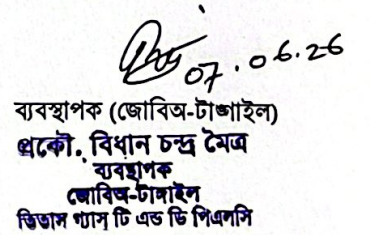 07.06.26
ব্যবস্থাপক (জোবিঅ-টাঙ্গাইল)
প্রকৌ. বিধান চন্দ্র মৈত্র
ব্যবস্থাপক
জোবিঅ-টাঙ্গাইল
তিতাস গ্যাস টি এন্ড ডি পিএলসি